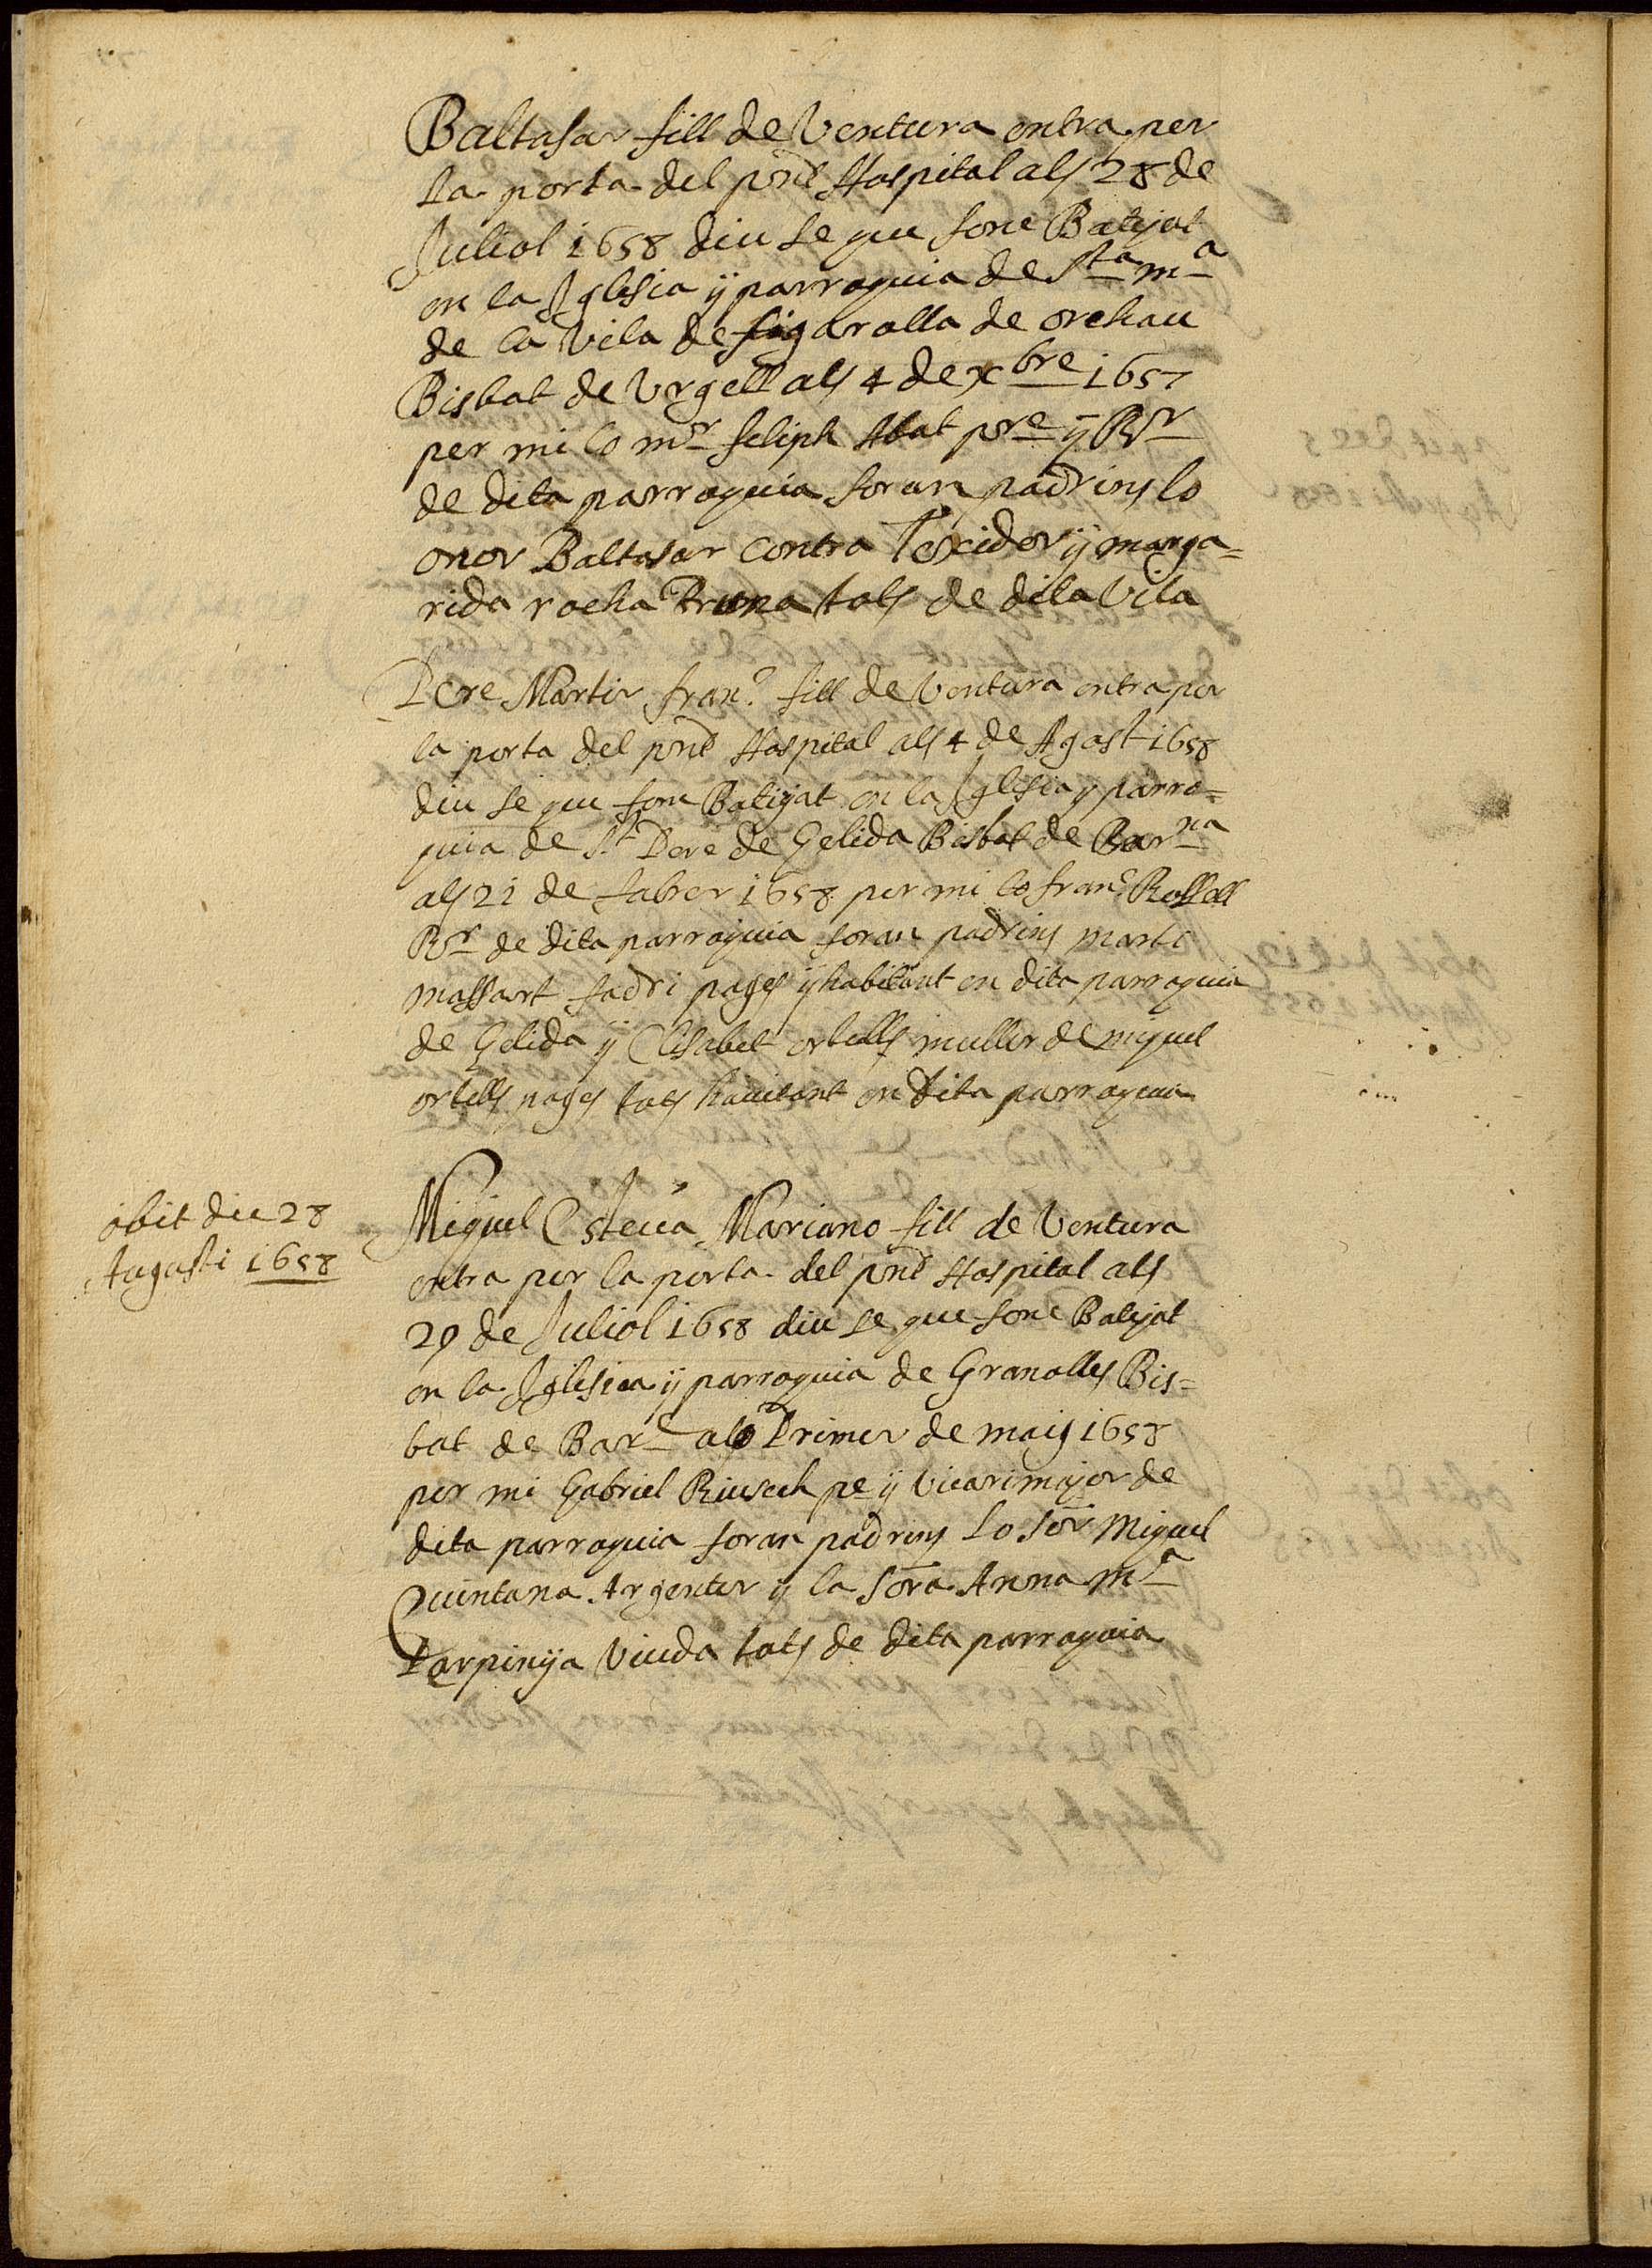 Baltasar fill de Ventura entra per
la porta del pnt Hospital als 28 de
Juliol 1658 diu se que fonc Batejat
en la Iglesia ÿ parroquia de Sta Ma
de la Vila de figarolla de orchau
Bisbat de Urgell als 4 de xbre 1657
per mi lo mr feliph Abat pre ÿ Rr
de dita parroquia foran padrins lo
onor Baltasar contra Texidor ÿ marga=
rida rocha Bruna tots de dita Vila
Pere Martir franc fill de Ventura entra per
la porta del pnt Hospital als 4 de Agost 1658
diu se que fonc Batejat en la Iglesia y parro=
quia de St Pere de Gelida Bisbat de Barna
als 21 de fabrer 1658 per mi lo franc Rossell
Rr de dita parroquia foran padrins marti
massart fadri pages ÿ habitant en dita parroquia
de Gelida ÿ Elisabet ortells muller de miquel
ortells pages tots havitant en dita parroquia
obit die 28
Augusti 1658
Miquel Esteva Mariano fill de Ventura
entra per la porta del pnt Hospital als
29 de Juliol 1658 diu se que fonc Batejat
en la Iglesia ÿ parroquia de Granolles Bis=
bat de Bara als Primer de maig 1658
per mi Gabriel Riusech pe ÿ Vicari major de
dita parroquia foran padrins Lo Sor Miquel
Quintana Argenter y la Sora Anna Ma
Parpinÿa Viuda tots de dita parroquia